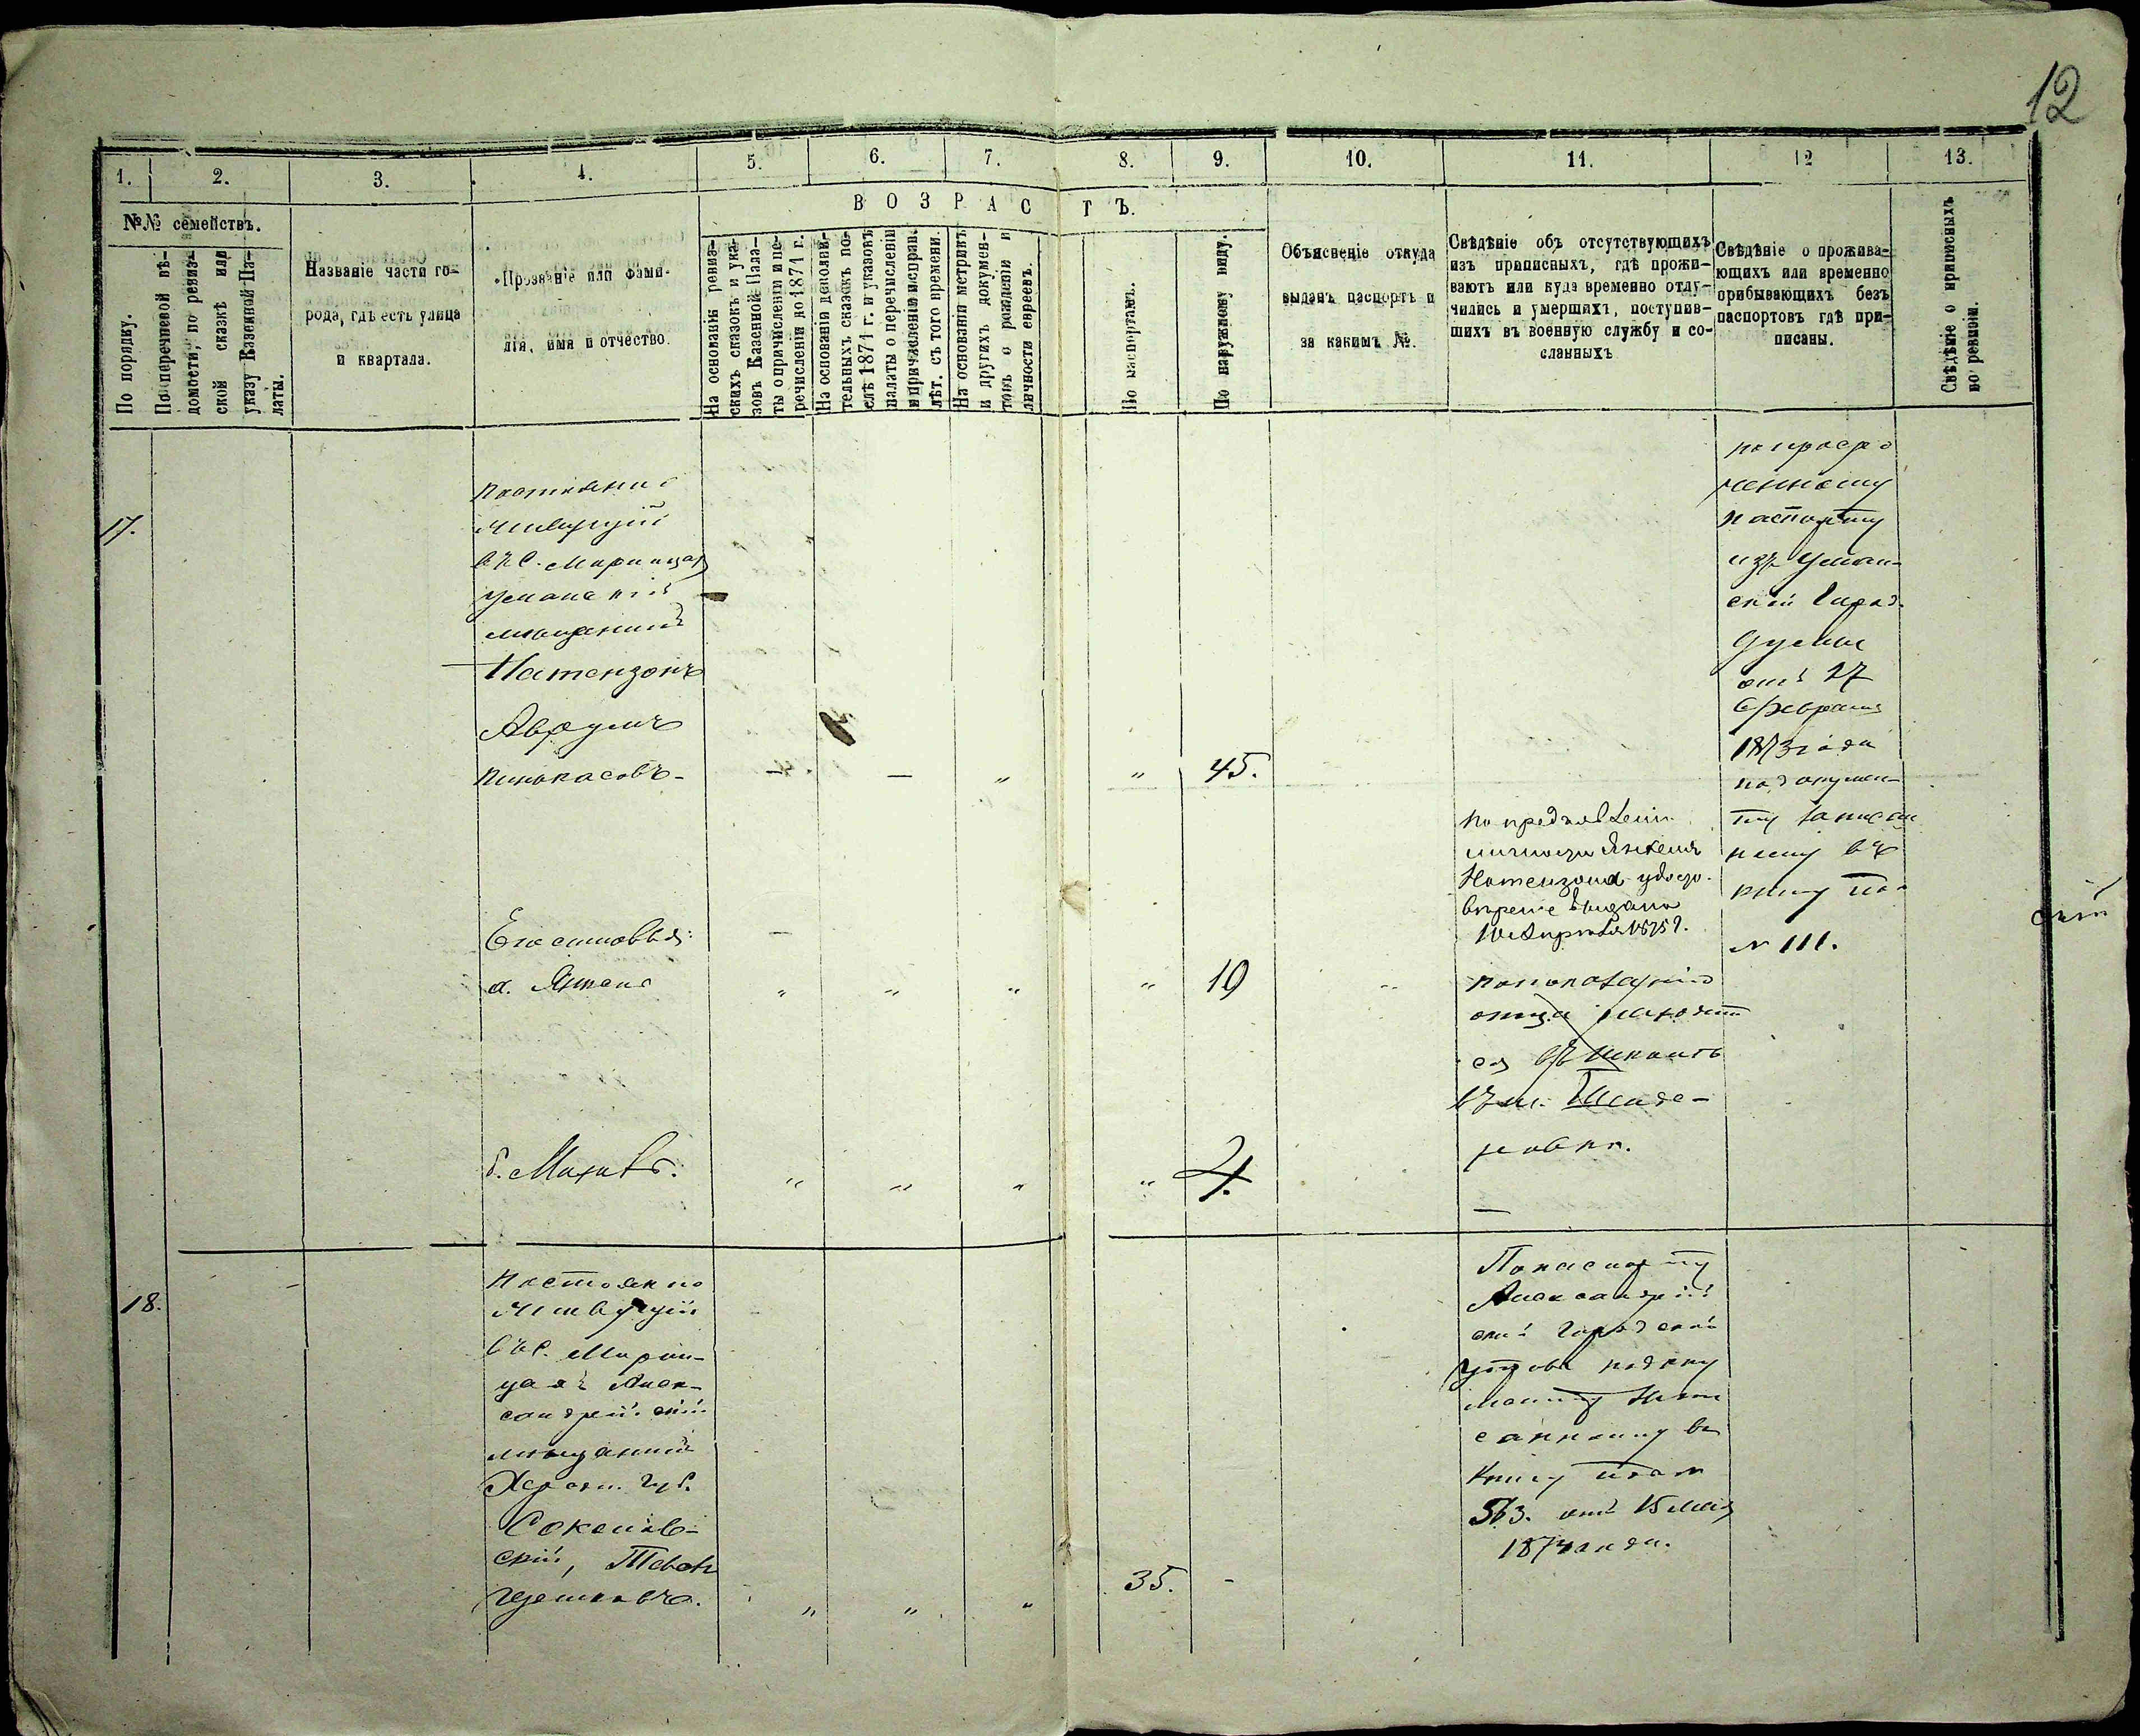 12
1. 2. 3. 4. 5. 6. 7. 8. 9. 10. 11. 12 13.
№№ семействъ.
По порядку.
По перечневой вѣ-
домости, по ревиз-
ской сказкѣ или
указу Казенной Па-
латы.
Названіе части го-
рода, гдѣ есть улица
и квартала.
Прозваніе или фами-
лія, имя и отчество.
ВОЗРАСТЪ.
На основаніи ревиз-
скихъ сказокъ и ука-
зовъ Казенной Пала-
ты о причисленіи и пе-
речисленіи до 1871 г.
На основаніи дополни-
тельныхъ сказокъ по-
слѣ 1871 г. и указовъ
палаты о перечисленіи
и причисленіи и исправ.
лѣт. съ того времени.
На основаніи метрикъ
и другихъ докумен-
товъ о рожденіи и
личности евреевъ.
По паспортамъ.
По наружному виду.
Объясненіе откуда
выданъ паспортъ и
за какимъ №.
Свѣдѣніе объ отсутствующихъ
изъ приписныхъ, гдѣ прожи-
ваютъ или куда временно отлу-
чились и умершихъ, поступив-
шихъ въ военную службу и со-
сланныхъ
Свѣдѣніе о прожива-
ющихъ или временно
прибывающихъ безъ
паспортовъ гдѣ при-
писаны.
Свѣдѣніе о приписныхъ
по ревизіи.
17.
постоянно
живущій
въ с.
уманскій
мещанинъ
Натензонъ
Аврумъ
Пинькасовъ-
— — " " 45.
по просро
ченному
паспорту
изъ Уман-
ской Город.
Думы
отъ 27
Февраля
1873 года
по докумен-
ту записан
ному въ
книгу
№ 111.
По предъявленіи
личности
Натензона удосто-
вереніе выдано
Его сыновья:
а.
" " " " 19
по показанію
отца находит
ся въ школѣ
въ м. Шенде-
ровкѣ.
б.
" " " " 4.
18.
постоянно
живущій
въ с. Марьин-
Алек-
сандрійскій
мещанинъ
Херсон. Губ.
скій,
" " " 35. -
По паспорту
Александрій
ской Городской
по доку
менту запи
санному въ
Книгу
563. отъ 15 мая
1874 года.